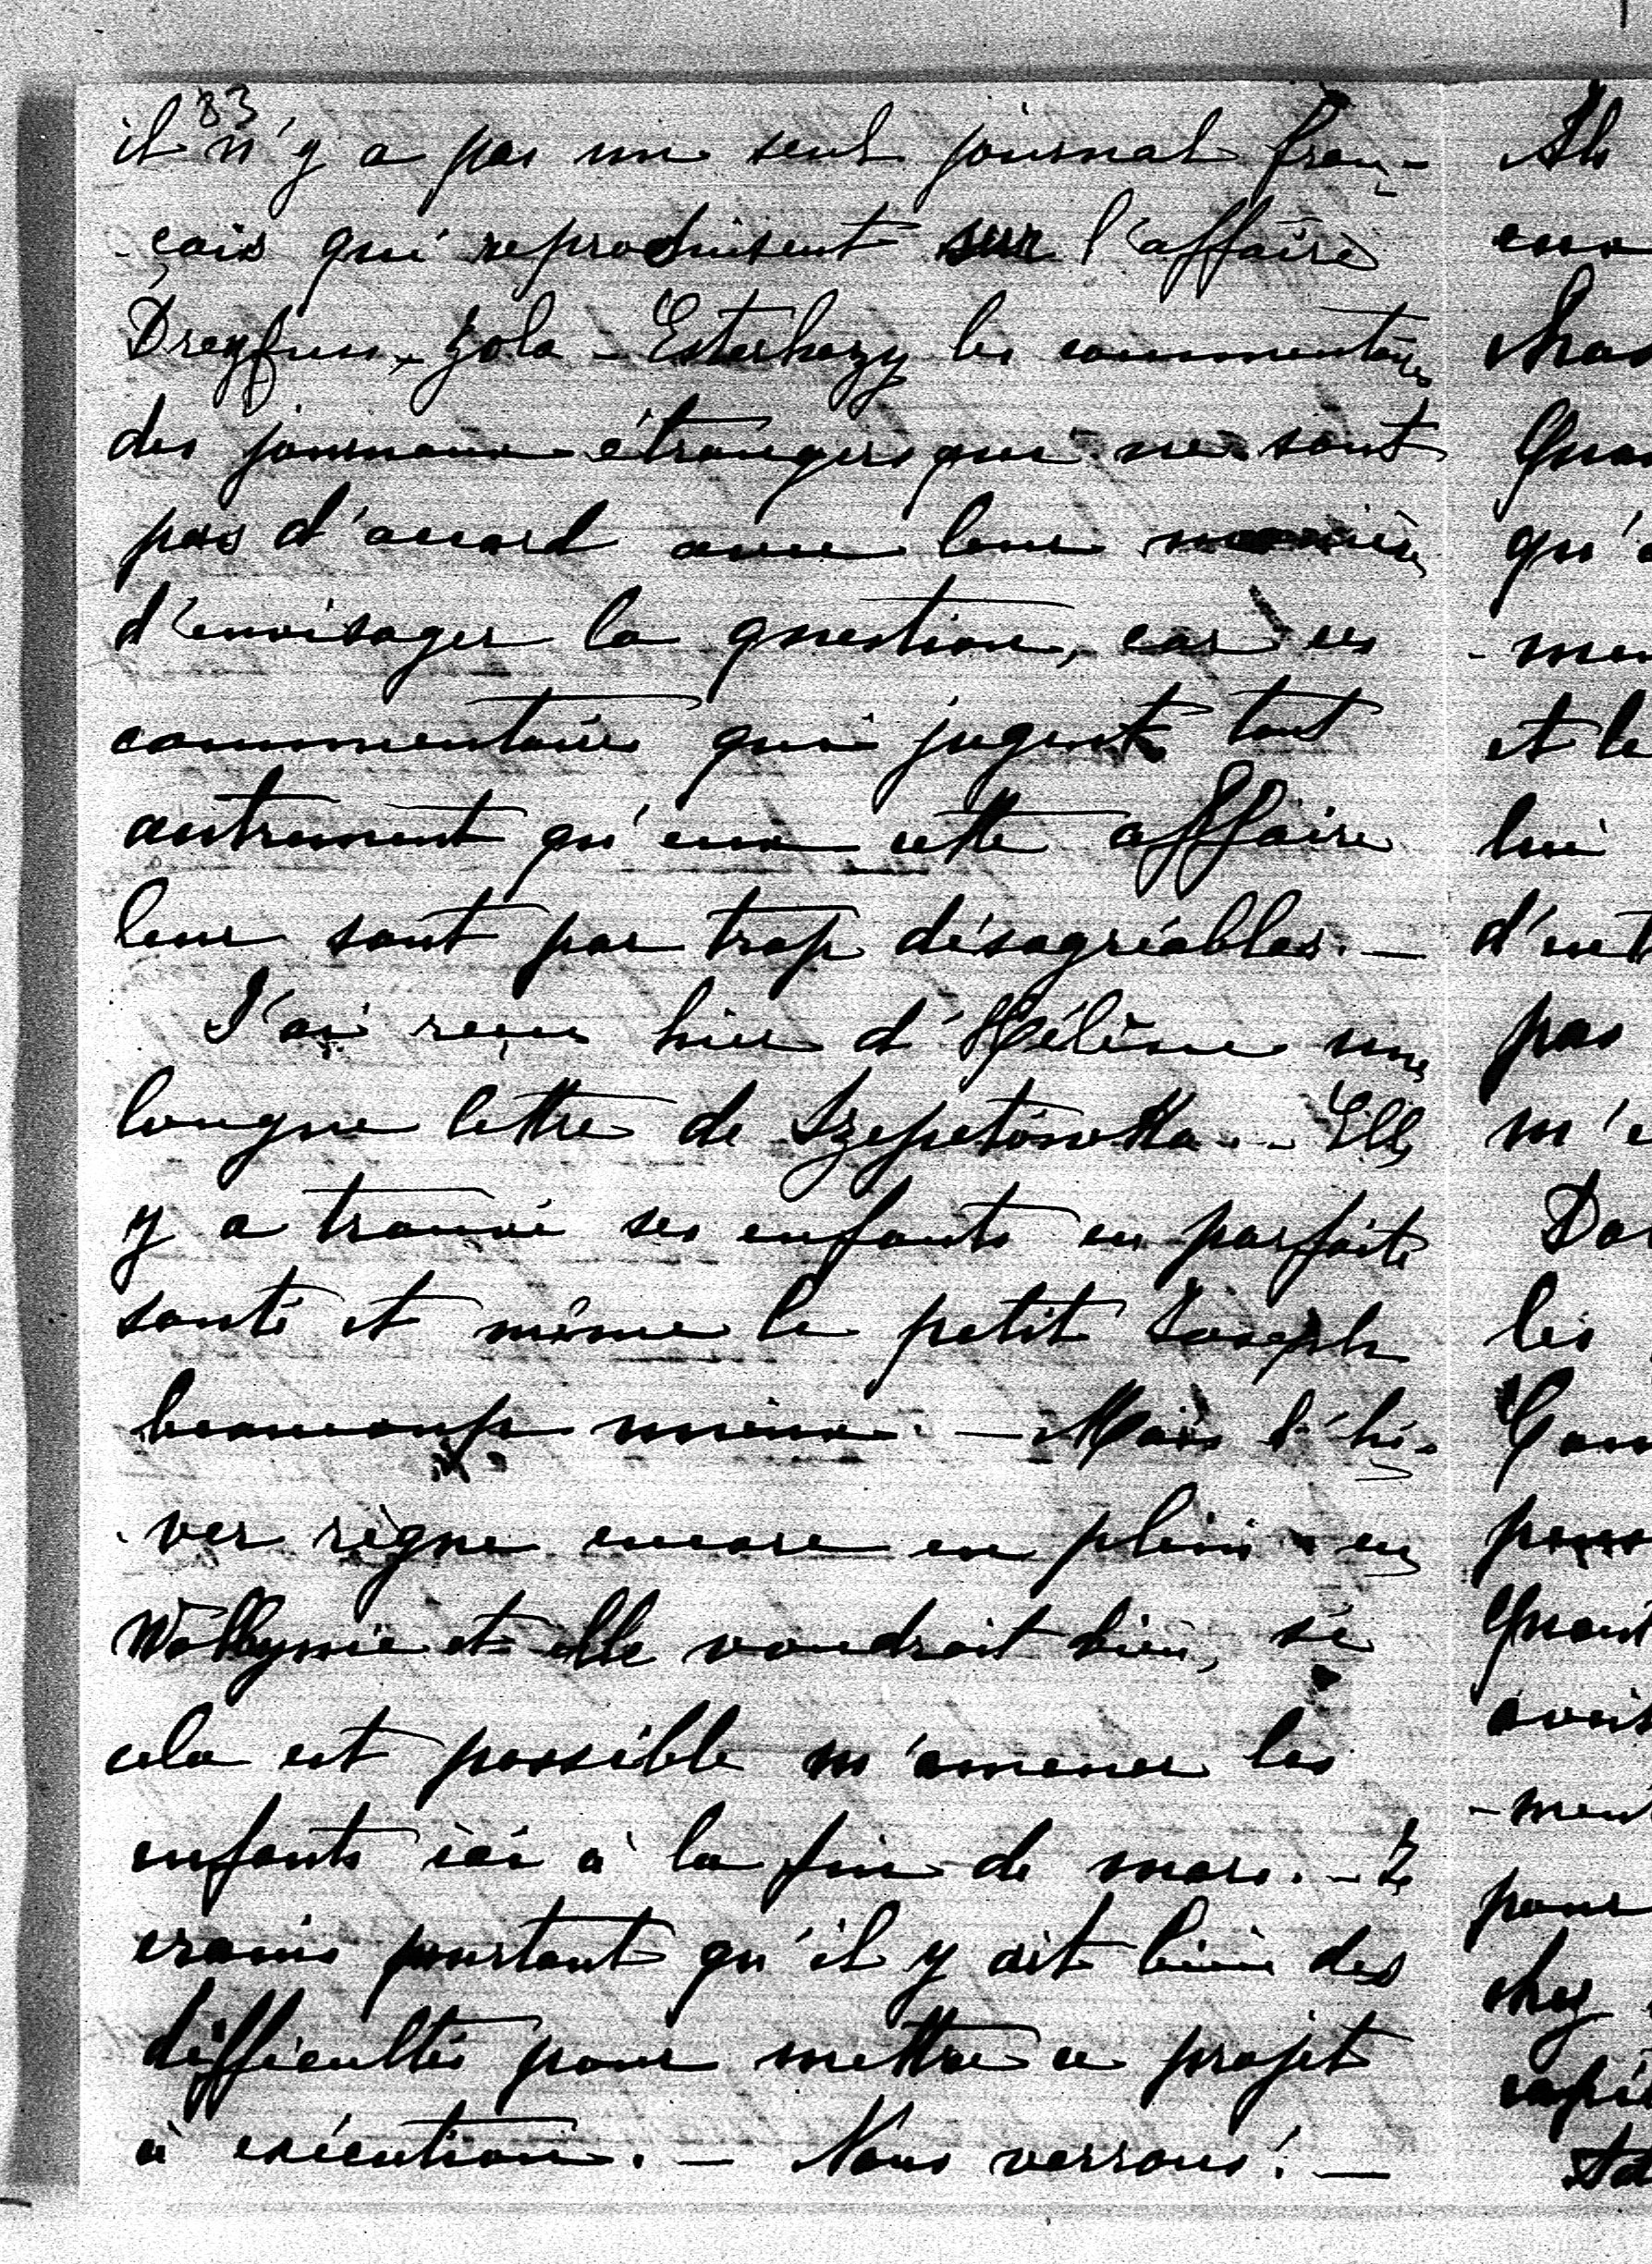 83
il n'y a pas un seul journal fran-
-çais qui reproduisent sur l'affaire
Dreyfus-Zola-Esterhazy les commentaires
des journaux étrangers qui ne sont
pas d'accord avec leur manière
d'envisager la question, car ces
commentaires qui jugent tout
autrement qu'eux cette affaire
leur sont par trop désagréables. —
J'ai reçu hier d'Hélène une
longue lettre de Szepetówka. - Elle
y a trouvé ses enfants en parfaite
santé et même le petit Joseph
beaucoup mieux. — Mais l'hi-
-ver règne encore en plein en
Wolhynie et elle voudrait bien, si
cela est possible m'amener les
enfants ici à la fin de mars. - Je
crains pourtant qu'il y ait bien des
difficultés pour mettre ce projet
à exécution. — Nous verrons! —
Ils
Quan
qu'
et le
lui
pas
m'e
les
-ment
pour
chez